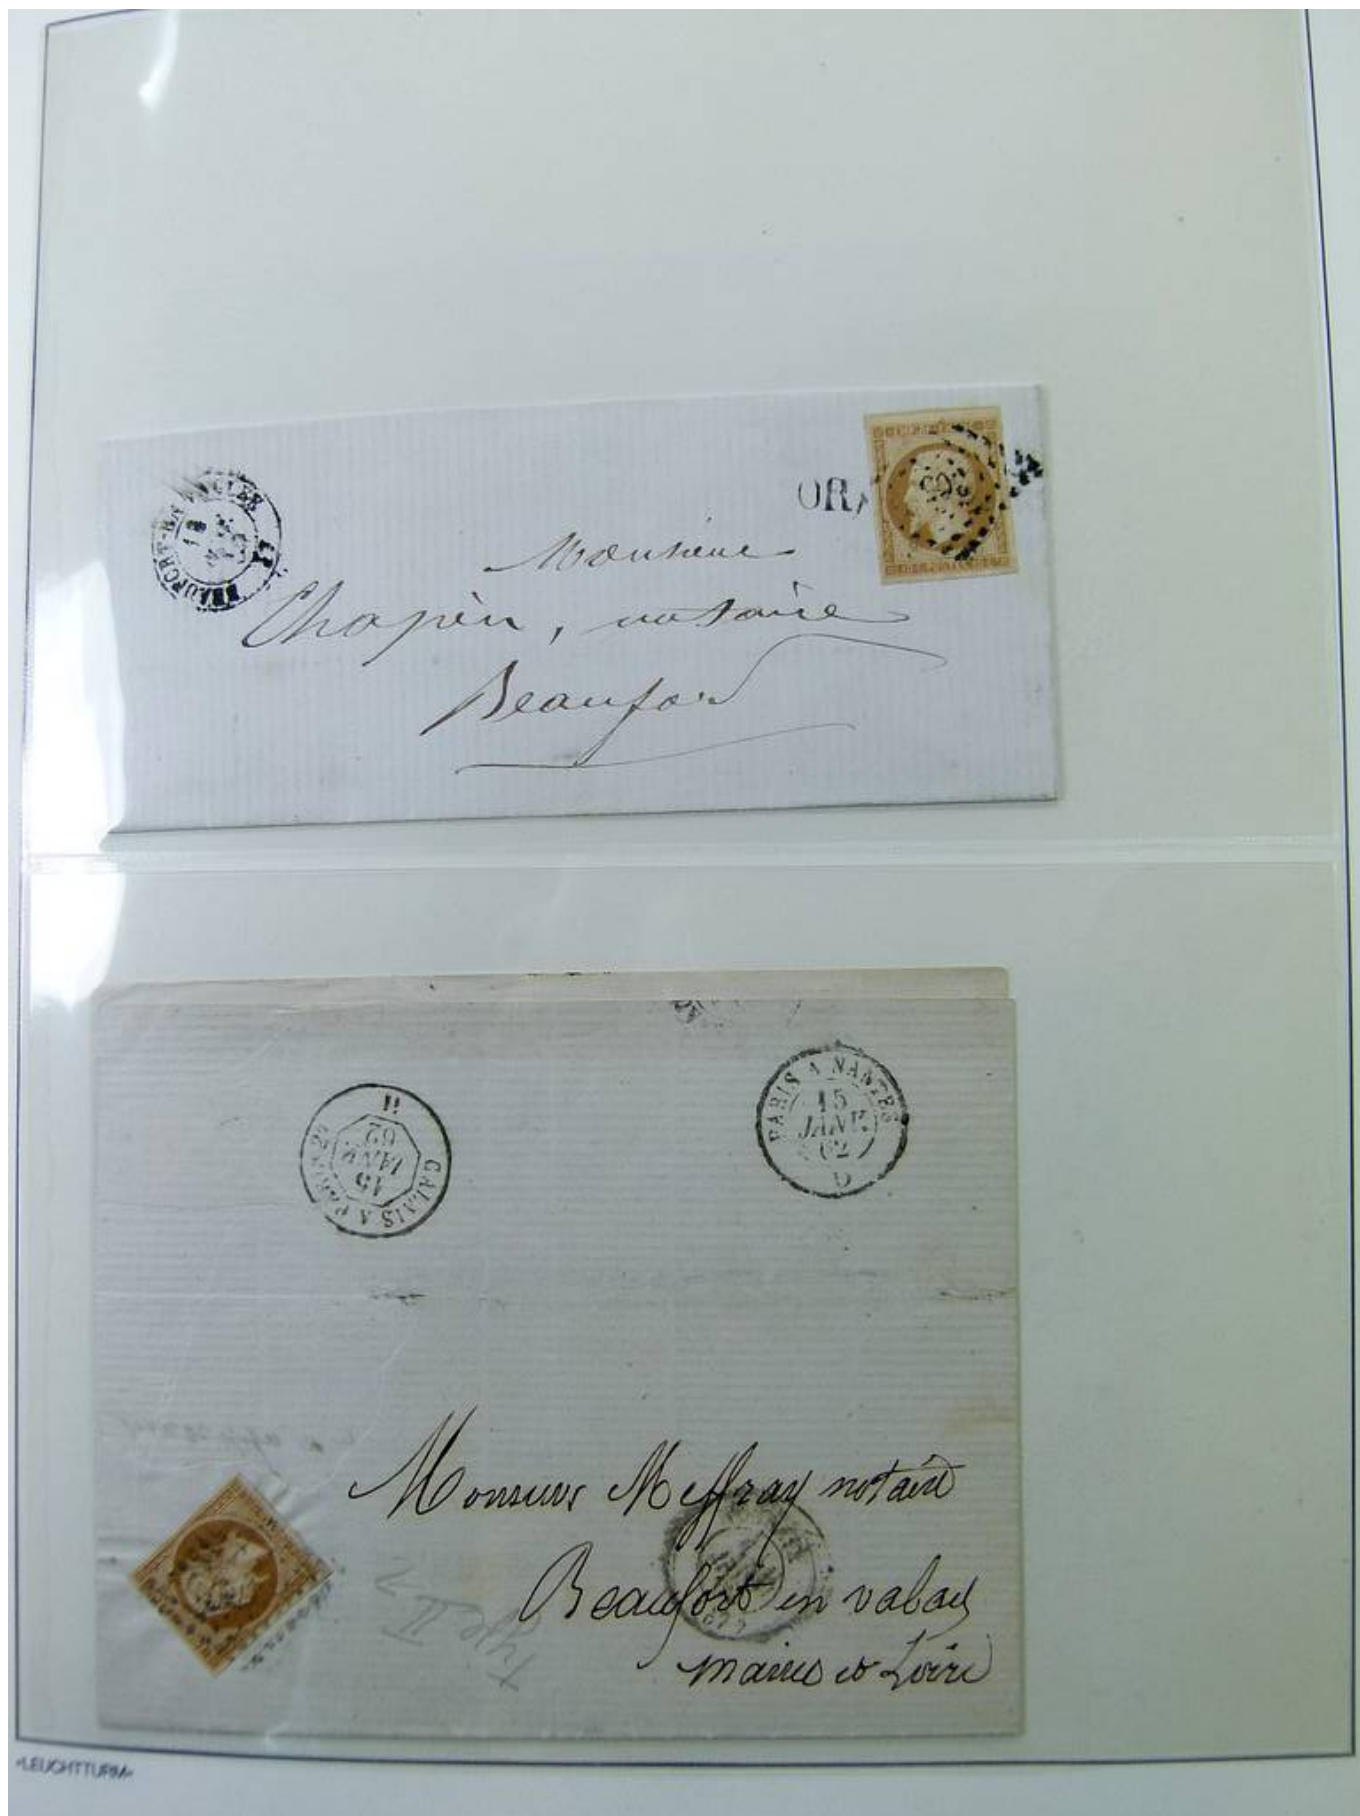 BEAUFORT-EN-VALLÉE
18
OR
Monsieur
Chapin, notaire
Beaufort
PARIS A NANTES
15
JANV.
62
D
CALAIS A PARIS 2°
15
JANV.
62
Monsieur Meffray notaire
Beaufort en valais
maine et Loire
type II
«LEUCHTTURM»